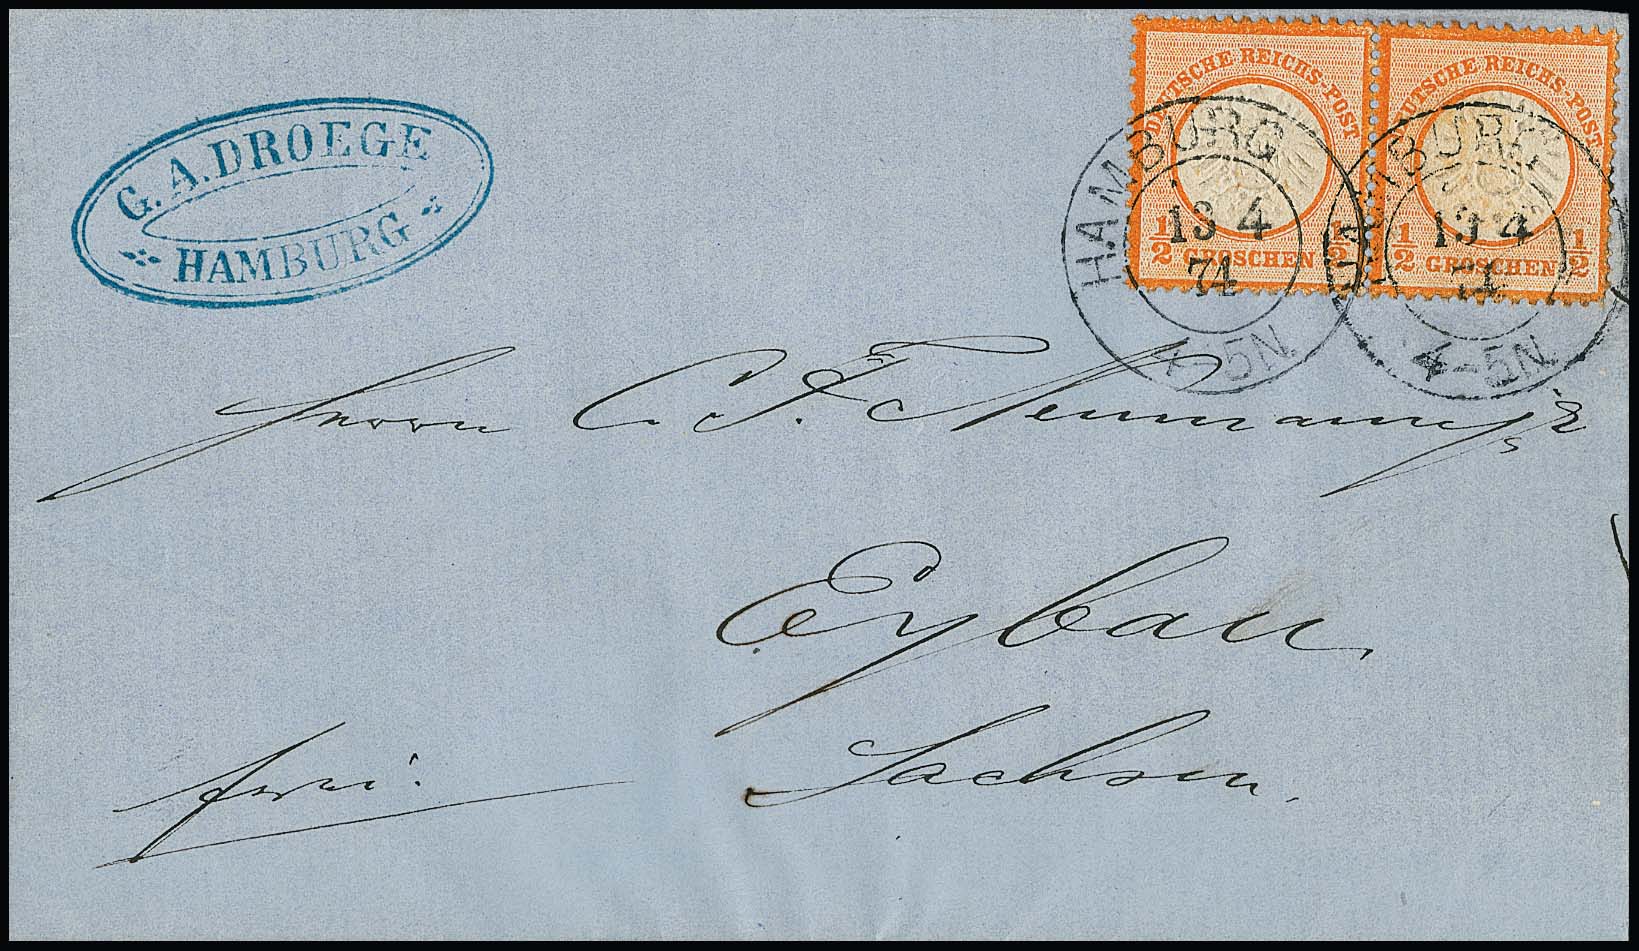 G. A. DROEGE
HAMBURG
DEUTSCHE REICHS-POST
1/2 GROSCHEN 1/2
DEUTSCHE REICHS-POST
1/2 GROSCHEN 1/2
HAMBURG
13 4
74
4-5N
HAMBURG
13 4
74
4-5N
Herrn C. F. Neumann
Eybau
Sachsen.
frei.